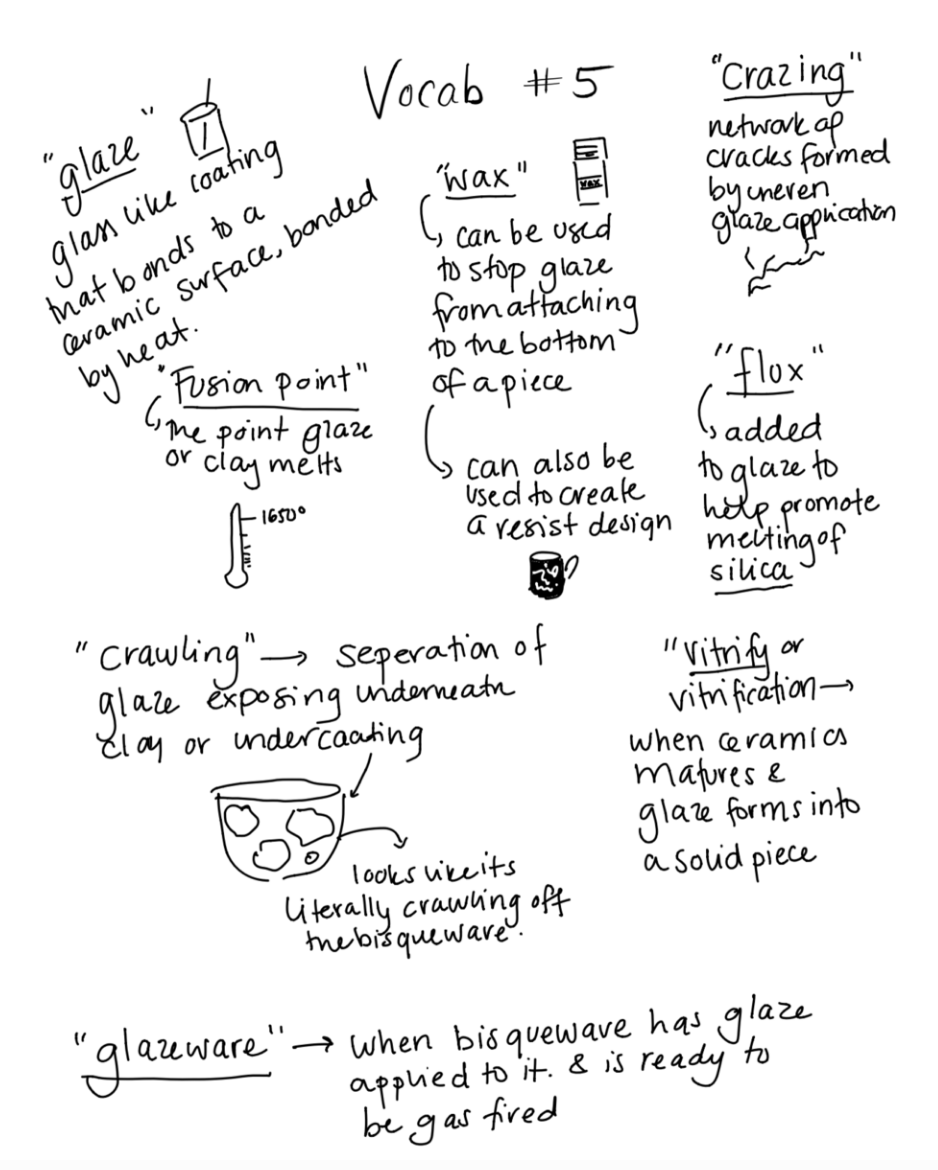 Vocab #5
"glaze"
glass like coating
that bonds to a
ceramic surface, bonded
by heat.
"Fusion point"
the point glaze
or clay melts
1650°
"wax"
wax
can be used
to stop glaze
from attaching
to the bottom
of a piece
can also be
used to create
a resist design
"Crazing"
network of
cracks formed
by uneven
glaze application
"flux"
added
to glaze to
help promote
melting of
silica
"crawling" → seperation of
glaze exposing underneath
clay or undercoating
looks like its
literally crawling off
the bisqueware.
"vitrify or
vitrification →
when ceramics
matures &
glaze forms into
a solid piece
"glazeware" → when bisqueware has glaze
applied to it. & is ready to
be gas fired